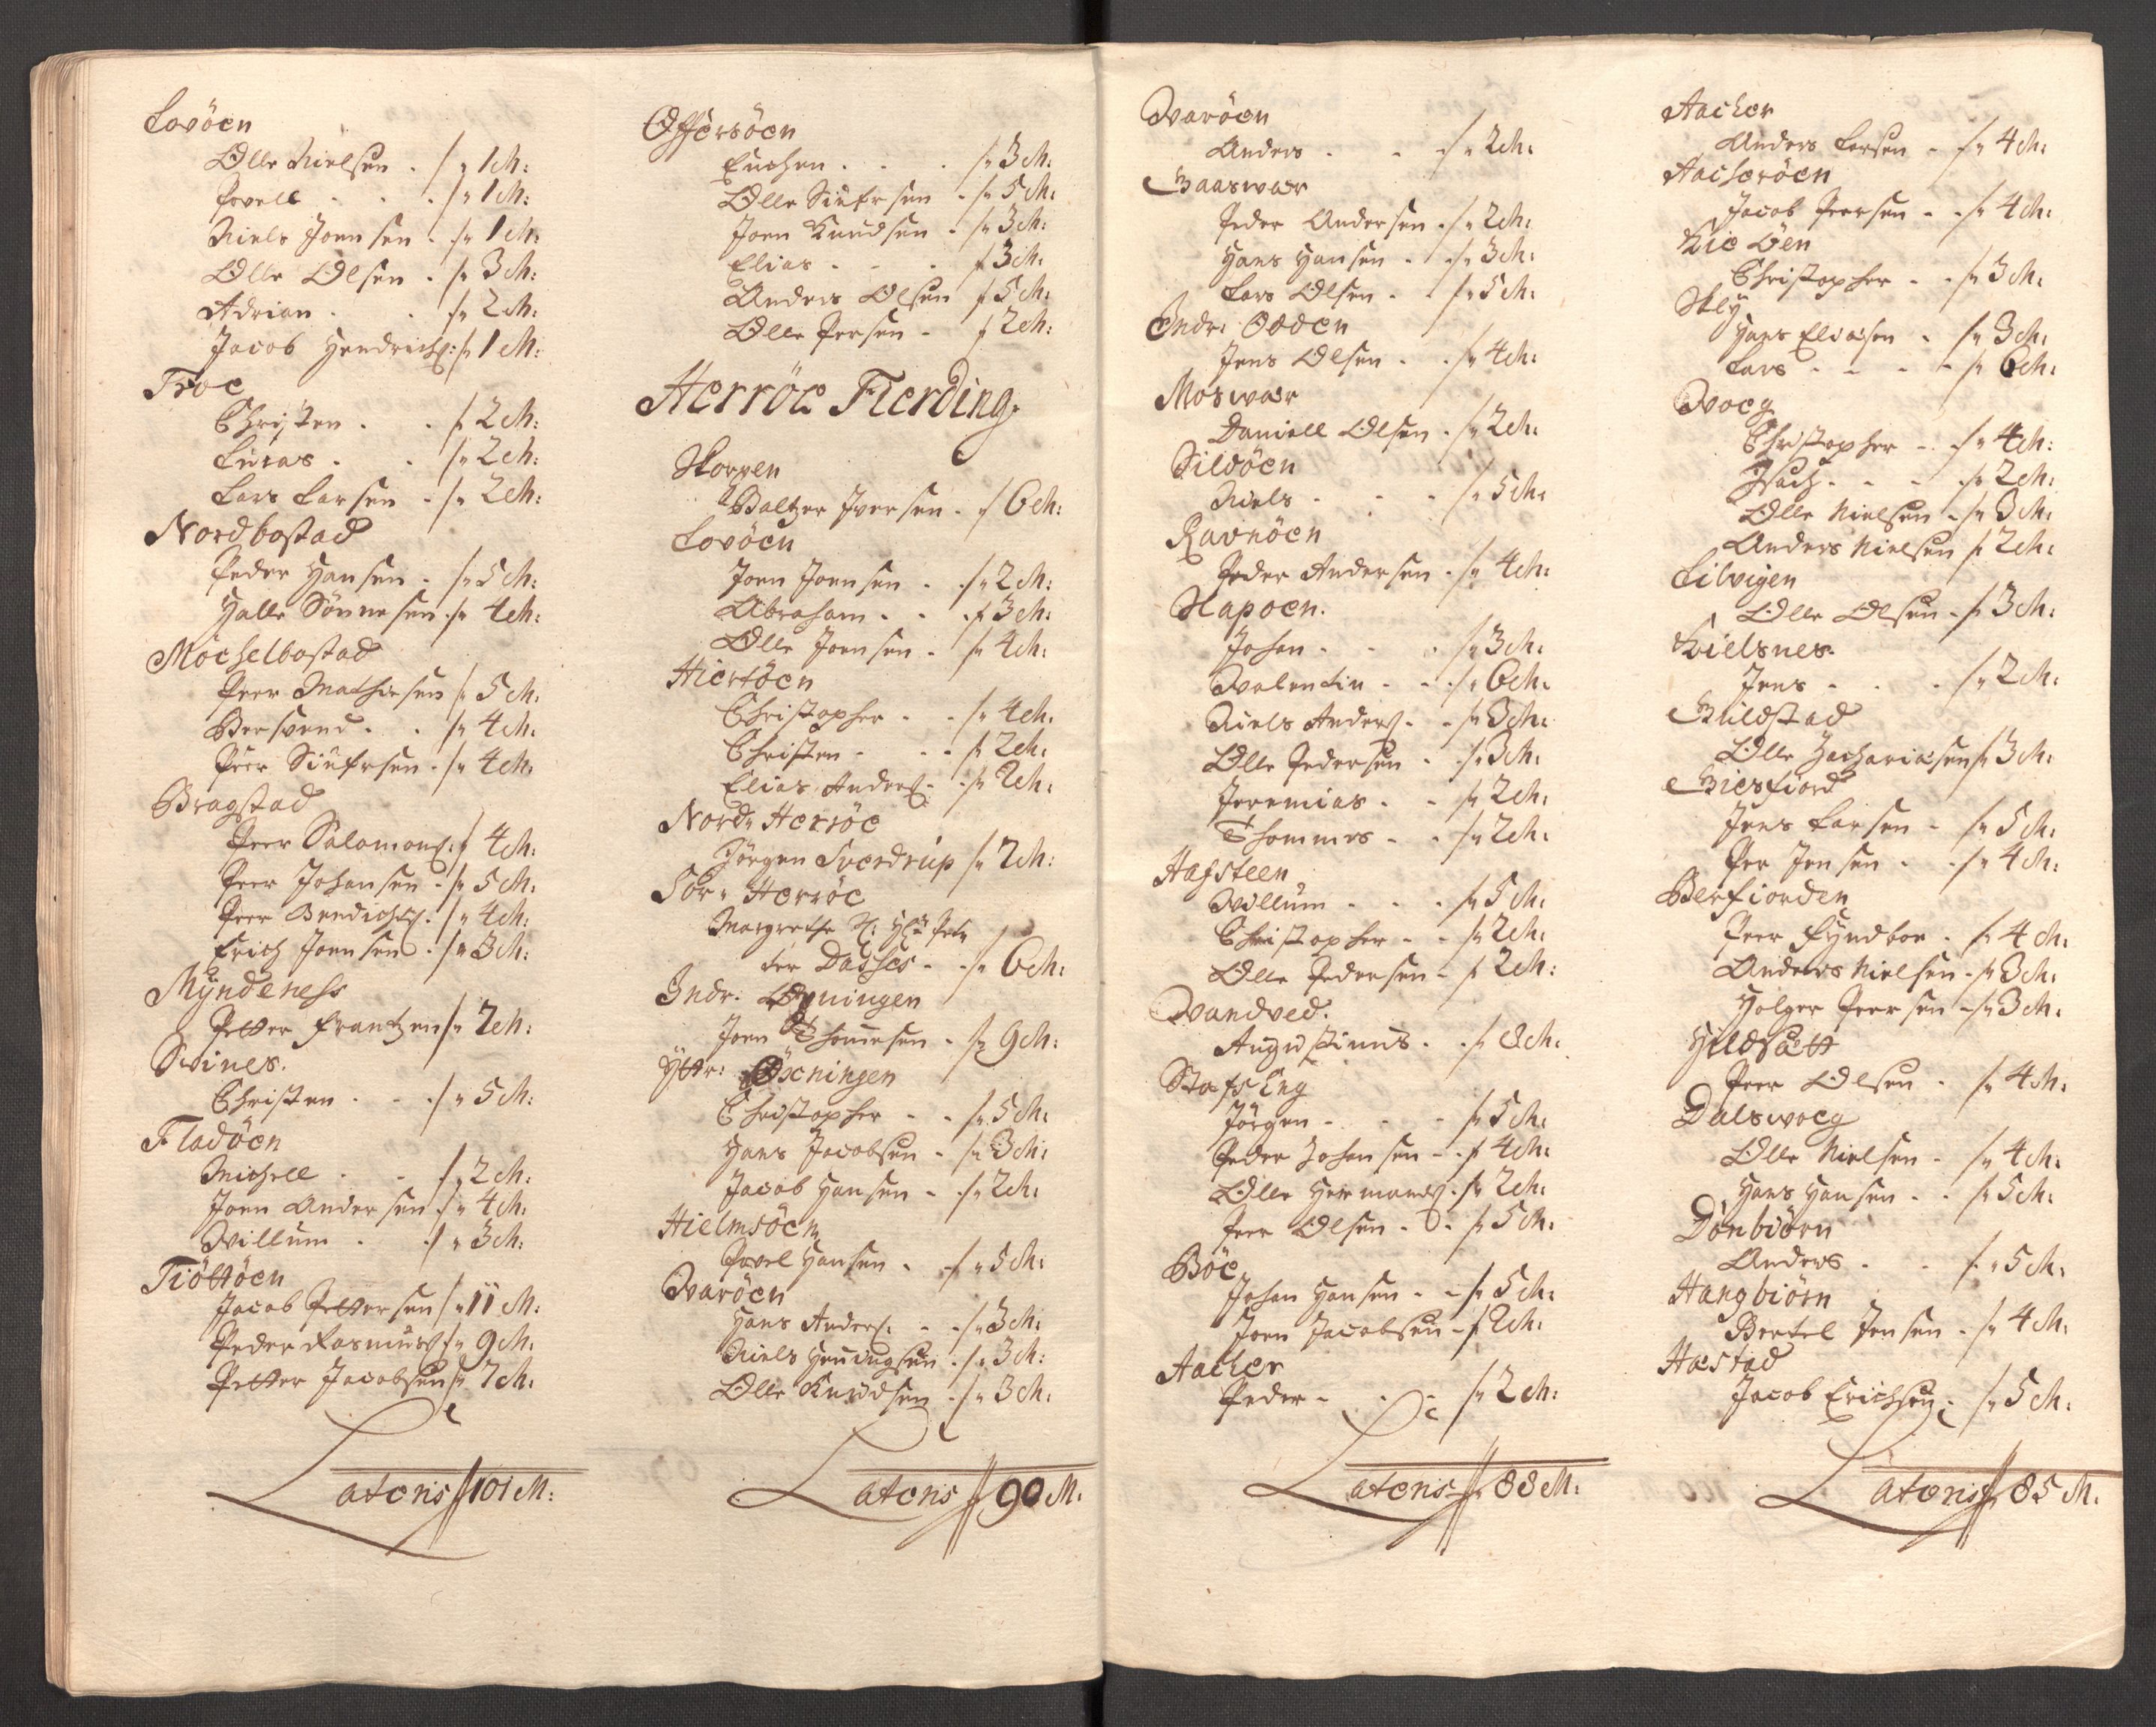 Lovöen
Olle Nielsen . /„ 1 M:
Povell . . . /„ 1 M:
Niels Joensen . /„ 1 M:
Olle Olsen . /„ 3 M:
Adrian . . /„ 2 M:
Jacob Hendrichs: /„ 1 M:
Troe
Christen . . /„ 2 M:
Lucas . . /„ 2 M:
Lars Larsen . /„ 2 M:
Nordbostad
Peder Hansen . /„ 5 M:
Halle Sönnesen . /„ 4 M:
Mochelbostad
Peer Mathisen /„ 5 M:
Bersvend . . /„ 4 M:
Peer Siufrsen . /„ 4 M:
Bragstad
Peer Salomons: / 4 M:
Peer Johansen . /„ 5 M:
Peer Bendichs . /„ 4 M:
Erich Joensen . /„ 3 M:
Mÿndeness
Petter Frantzen /„ 7 M:
Svines.
Christen . . . /„ 5 M:
Fladöen
Michell . . /„ 2 M:
Joen Andersen /„ 4 M:
Villum . . /„ 3 M:
Tiöttöen
Jacob Pettersen /„ 11 M:
Peder Rasmuss /„ 9 M:
Petter Jacobsen /„ 7 M:
Lateris // 101 M:
Offersöen
. . . /„ 3 M:
Olle Siufrsen . /„ 5 M:
Joen Knudsen . /„ 3 M:
Elias . . . / 3 M:
Anders Olsen / 5 M:
Olle Persen . / 2 M:
Herröe Fierding.
Skorpen
Baltzer Iversen . / 6 M:
Lovöen
Joen Joensen . . /„ 2 M:
Abraham . . . / 3 M:
Olle Joensen . /„ 4 M:
Hiertöen
Christopher . . /„ 4 M:
Christen . . . /„ 2 M:
Elias Anders . . /„ 2 M:
Nord„ Herröe
Jörgen Sverdrup /„ 7 M:
Sör„ Herröe
Margrethe Hr: Pet„
ter Dasses . . /„ 6 M:
Indr: Öxningen
Joen Thomesen . /„ 9 M:
Yttr: Öxningen
Christopher . . /„ 5 M:
Hans Jacobsen . /„ 3 M:
Jacob Hansen . /„ 2 M:
Hielmsöen
Povel Hansen . /„ 5 M:
Qvaröen
Hans Anders: . . /„ 3 M:
Niels Henningsen . /„ 3 M:
Olle Knudsen . /„ 3 M:
Lateris // 90 M:
Qvaröen
Anders . . . /„ 2 M:
Gaaswær
Peder Andersen . /„ 2 M:
Hans Hansen . . /„ 3 M:
Lars Olsen . . /„ 5 M:
Indr: Odden
Jens Olsen . . /„ 4 M:
Moswær
Daniell Olsen . /„ 2 M:
Sildöen
Niels . . . /„ 5 M:
Ravnöen
Peder Andersen . /„ 4 M:
Slapoen.
Johan . . . /„ 3 M:
Valentin . . . /„ 6 M:
Niels Anders . . /„ 3 M:
Olle Pedersen . /„ 3 M:
Jeremias . . /„ 2 M:
Thommes . . /„ 2 M:
Hafsteen
Villum . . . /„ 5 M:
Christopher . . /„ 2 M:
Olle Pedersen . / 2 M:
Vandved.
Augustinus . . / 8 M:
Stafs Eng
Jörgen . . . /„ 5 M:
Peder Johansen . . / 4 M:
Olle Hermands . /„ 2 M:
Peer Olsen . . /„ 5 M:
Böe
Johan Hansen . . /„ 5 M:
Joen Jacobsen . / 2 M:
Aacher
Peder . . . /„ 2 M:
Lateris // 88 M:
Aacher
Anders Larsen . /„ 4 M:
Aacheröen
Jacob Peersen . . /„ 4 M:
Kie Öen
Christopher . . /„ 3 M:
Skeÿ
Hans Eliæsen . /„ 3 M:
Lars . . . . /„ 6 M:
Vaag
Christopher . . /„ 4 M:
Isach . . . . /„ 2 M:
Olle Nielsen . /„ 3 M:
Anders Nielsen / 2 M:
Lilvigen
Olle Olsen . / 3 M:
Kielsnes.
Jens . . . /„ 2 M:
Buldstad
Olle Zachariæsen /„ 3 M:
Biesfiord
Jens Larsen . /„ 5 M:
Per Jensen . . /„ 4 M:
Berfiorden
Peer Fyndboe . /„ 4 M:
Anders Nielsen . /„ 3 M:
Holger Peersen . /„ 3 M:
Hildsætt
Peer Olsen . /„ 4 M:
Dalsvoeg
Olle Nielsen . /„ 4 M:
Hans Hansen . . /„ 5 M:
Dönbiörn
Anders . . /„ 5 M:
Hangbiörn
Bertel Jensen . /„ 4 M:
Hæstad
Jacob Erichsen . /„ 5 M:
Lateris // 85 M: